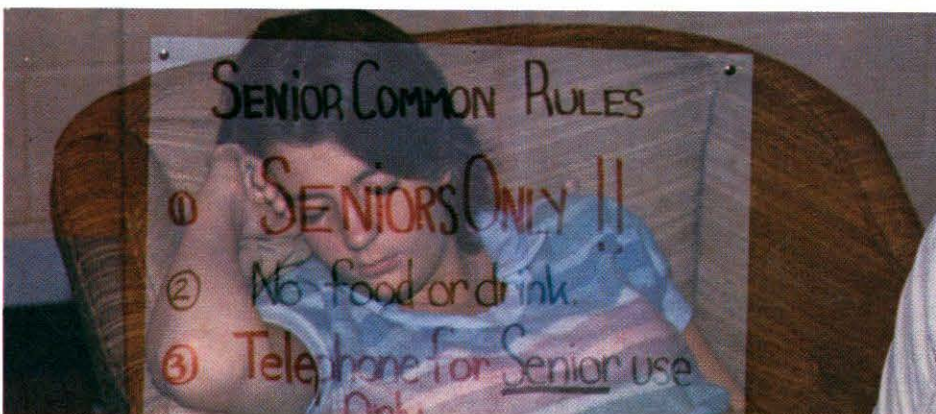 SENiOR COMMON RULES
① SENiORS ONLY !!
② No food or drink.
③ Telephone for Senior use
Only